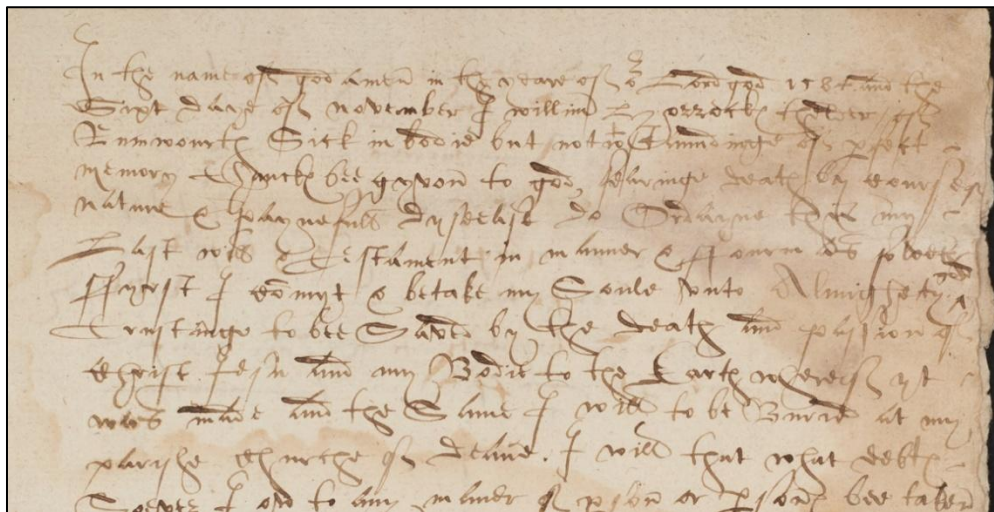 In the name of god amen in the yeare of or Lord god 1584 and the
Sixt daye of november I willim theller of
Rumwourth Sick in bodie but notwtstandinge of pfect
memory thancks bee gyven to god, fearinge death by course of
nature & paynefull dyseasse do Ordayne this my
Last will & Testament in manner & fourm as foloeth
ffyrst I comyt & betake my Soule vnto Almightty god
Trustinge to bee Saved by the death and passion of
Christ Jesu and my Bodie to the Earth wherof yt
was made and the Same I will to be Buried at my
parishe Churche of deane. I will that what debts
Soever I owe to any maner of pson or psons bee taken